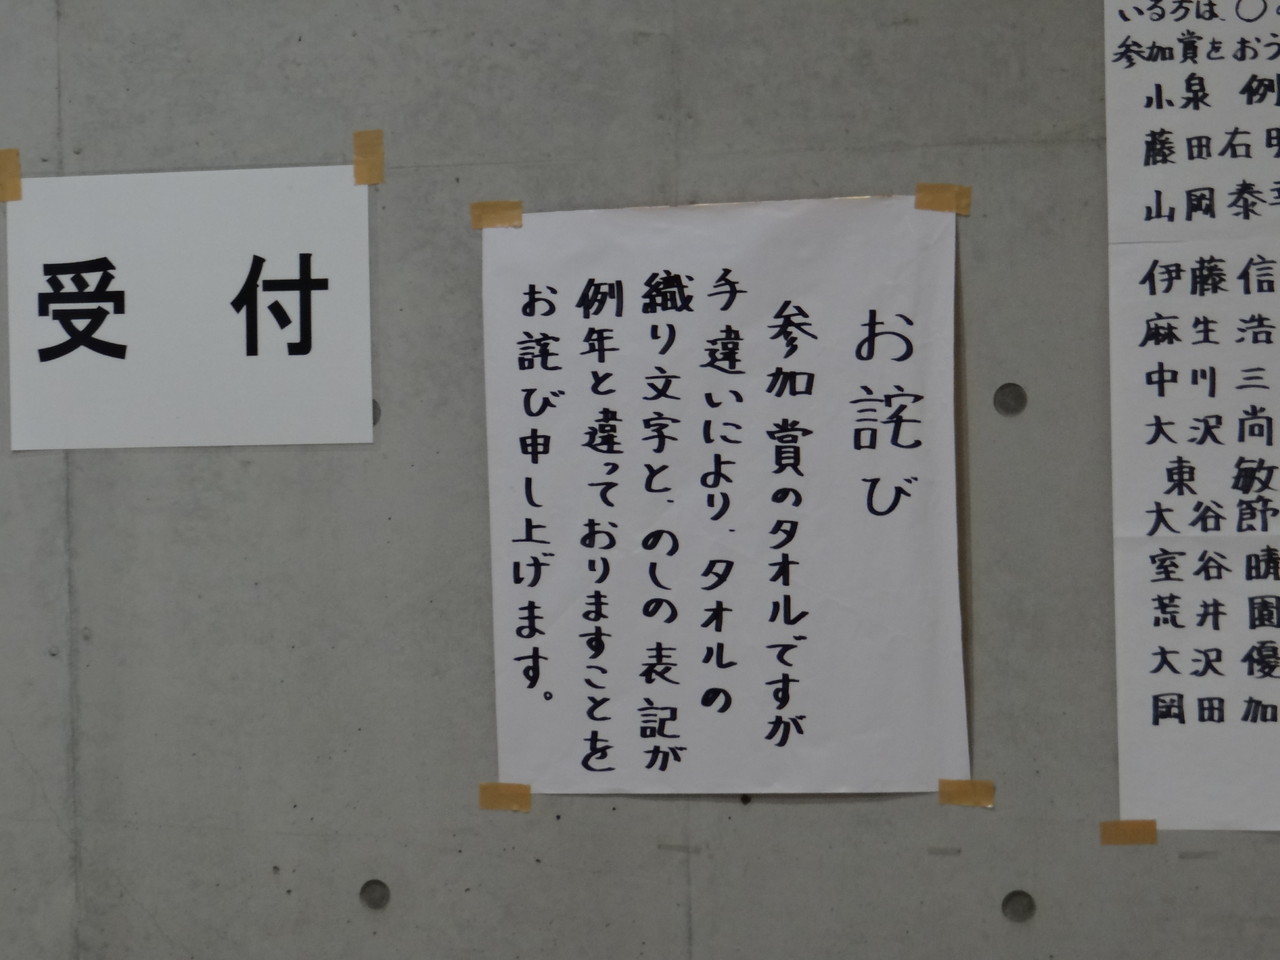 受付
お詫び
参加賞のタオルですが
手違いにより、タオルの
織り文字と、のしの表記が
例年と違っておりますことを
お詫び申し上げます。
いる方は、〇
参加賞をおう
小泉 例
藤田右
山岡泰
伊藤信
麻生浩
中川三
大沢尚
東 敏
大谷節
室谷晴
荒井園
大沢優
岡田加